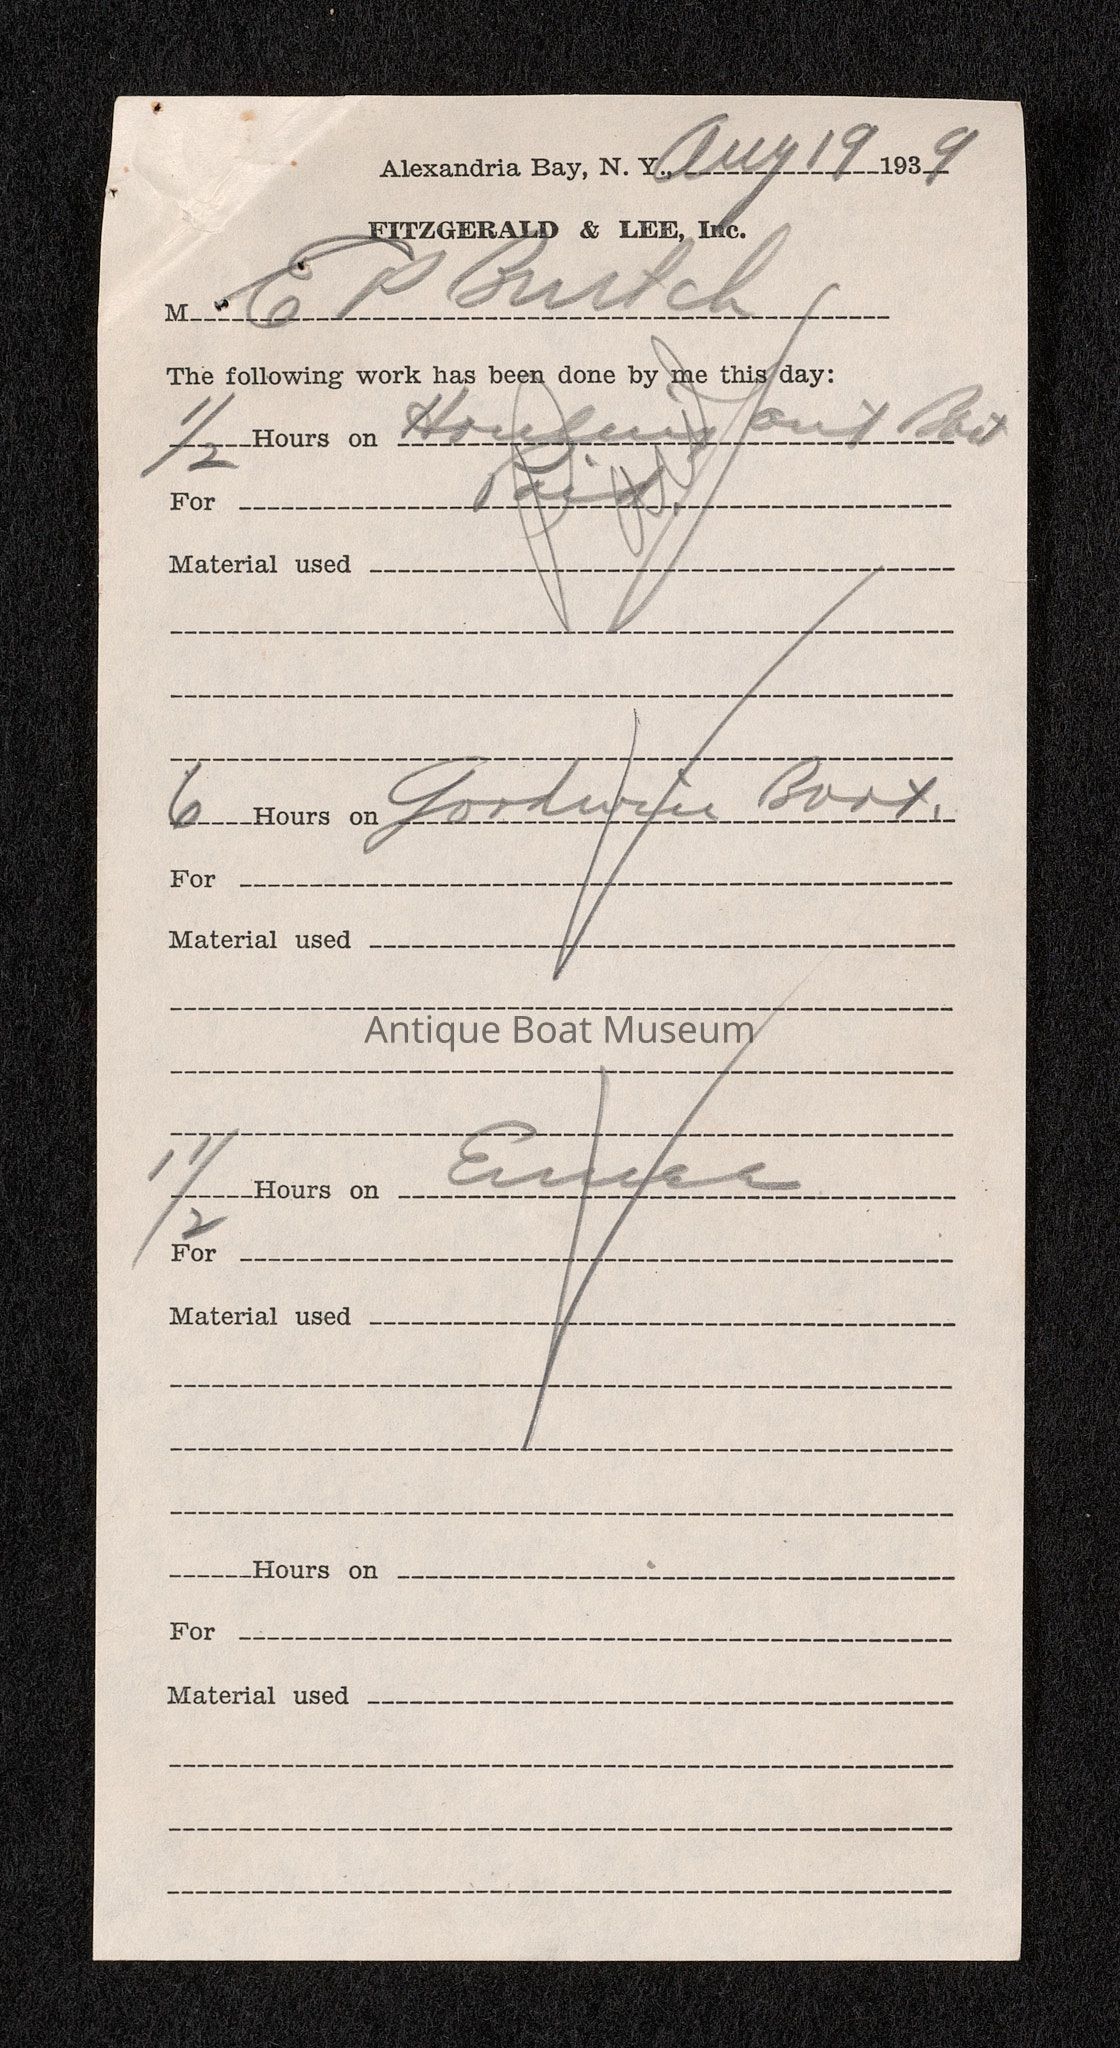 Alexandria Bay, N. Y., Aug 19 1939
FITZGERALD & LEE, Inc.
M E P Burtch
The following work has been done by me this day:
1/2 Hours on Hauling out Boat
For Paid.
Material used
6 Hours on Goodwin Boat.
For
Material used
Antique Boat Museum
1 1/2 Hours on
For
Material used
Hours on
For
Material used